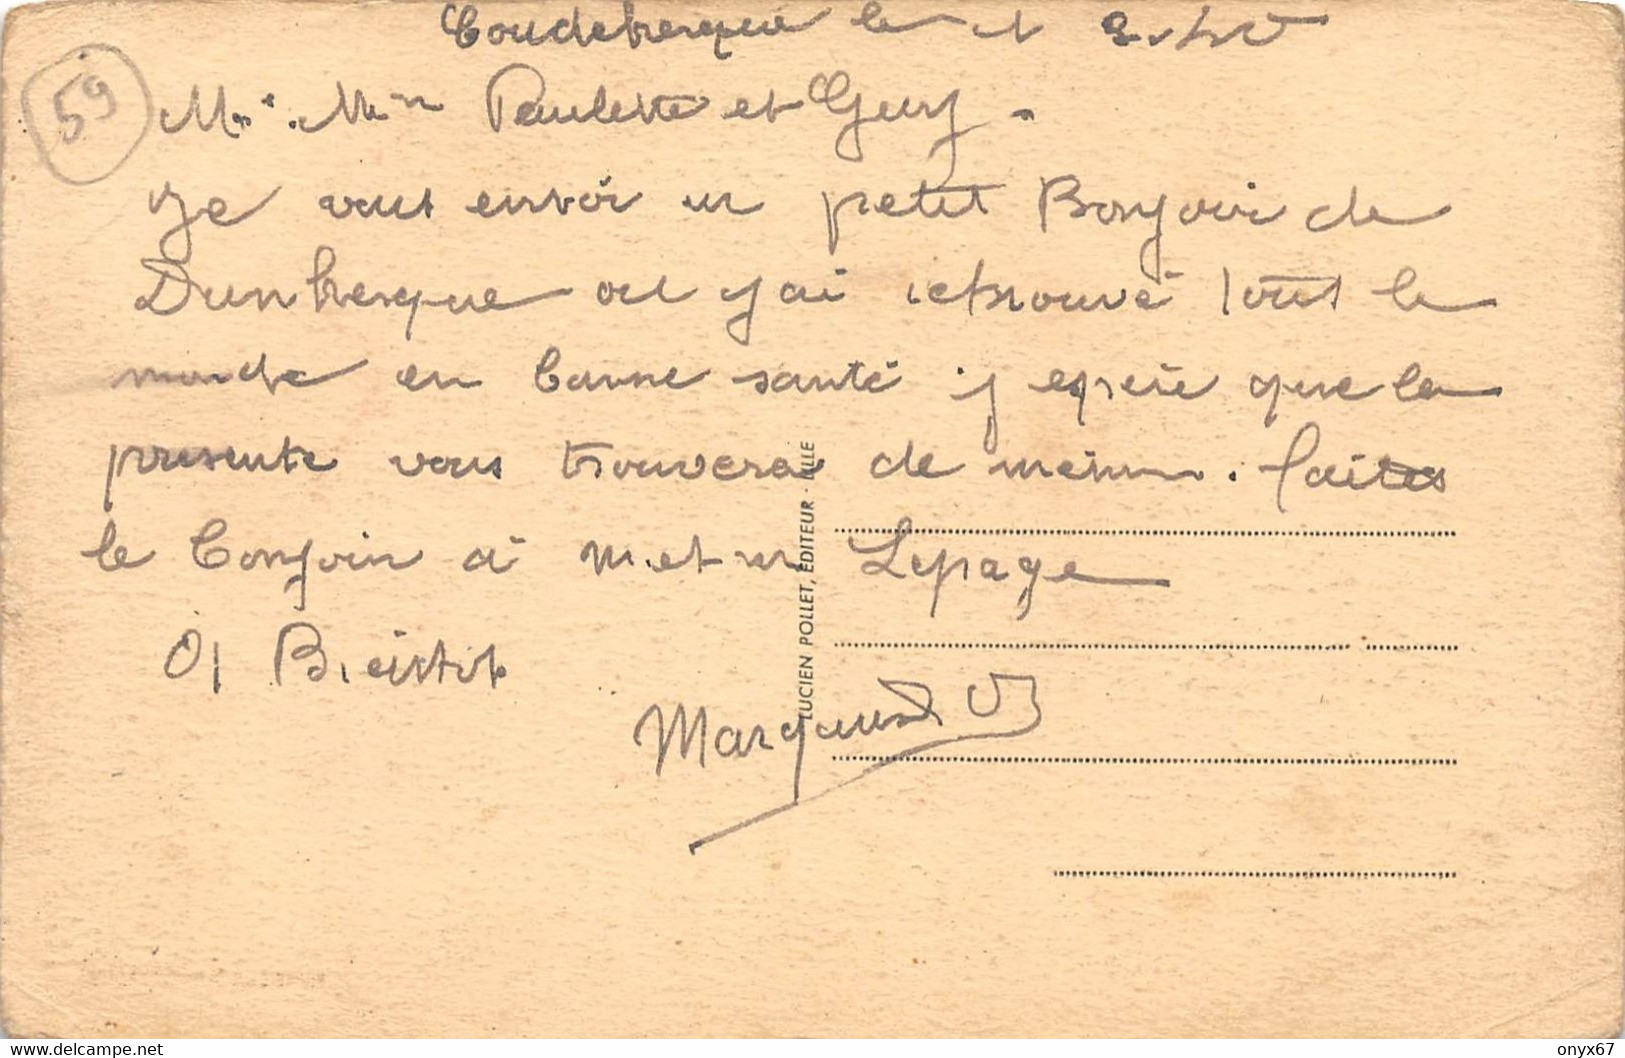 Coudekerque le 1
59
M. Mm Paulette et Guy.
Je vous envoi un petit Bonjour de
Dunkerque ou j'ai retrouvé tous le
monde en bonne santé j espère que la
presente vous trouvera de même. faites
le Bonjoir à M. et M Lepage
LUCIEN POLLET, ÉDITEUR · LILLE
onyx67